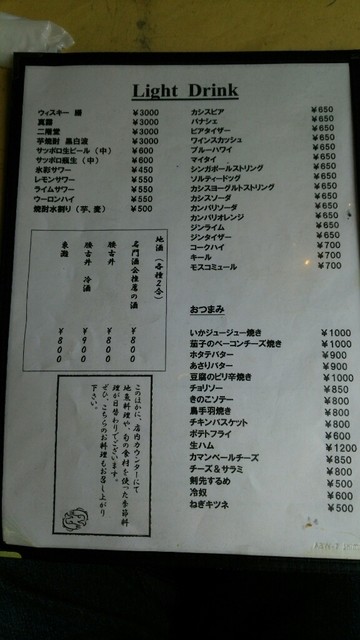 Light Drink
ウィスキー 膳 ¥3000
真露 ¥3000
二階堂 ¥3000
芋焼酎 黒白波 ¥3000
サッポロ生ビール(中) ¥600
サッポロ瓶生(中) ¥600
氷彩サワー ¥450
レモンサワー ¥550
ライムサワー ¥550
ウーロンハイ ¥550
焼酎水割り(芋、麦) ¥500
カシスビア ¥650
パナシェ ¥650
ビアタイザー ¥650
ワインスカッシュ ¥650
ブルーハワイ ¥650
マイタイ ¥650
シンガポールストリング ¥650
ソルティードッグ ¥650
カシスヨーグルトストリング ¥650
カシスソーダ ¥650
カンパリソーダ ¥650
カンパリオレンジ ¥650
ジンライム ¥650
ジンタイザー ¥650
コークハイ ¥700
キール ¥700
モスコミュール ¥700
地酒(各種2合)
名門酒会推薦の酒 ¥800
腰古井 ¥800
腰古井 冷酒 ¥900
東灘 ¥800
このほかに、店内カウンターにて
地魚料理や、旬の食材を使った季節料
理が日替わりでございます。
ぜひ、こちらのお料理もお召し上がり
下さい。
おつまみ
いかジュージュー焼き ¥1000
茄子のベーコンチーズ焼き ¥1000
ホタテバター ¥900
あさりバター ¥900
豆腐のピリ辛焼き ¥1000
チョリソー ¥850
きのこソテー ¥800
鳥手羽焼き ¥800
チキンバスケット ¥800
ポテトフライ ¥600
生ハム ¥1200
カマンベールチーズ ¥850
チーズ&サラミ ¥800
剣先するめ ¥500
冷奴 ¥600
ねぎキツネ ¥500